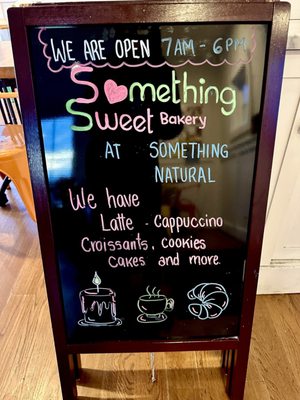 WE ARE OPEN 7AM - 6PM
Something
Sweet Bakery
AT SOMETHING
NATURAL
We have
Latte - Cappuccino
Croissants, cookies
Cakes and more.